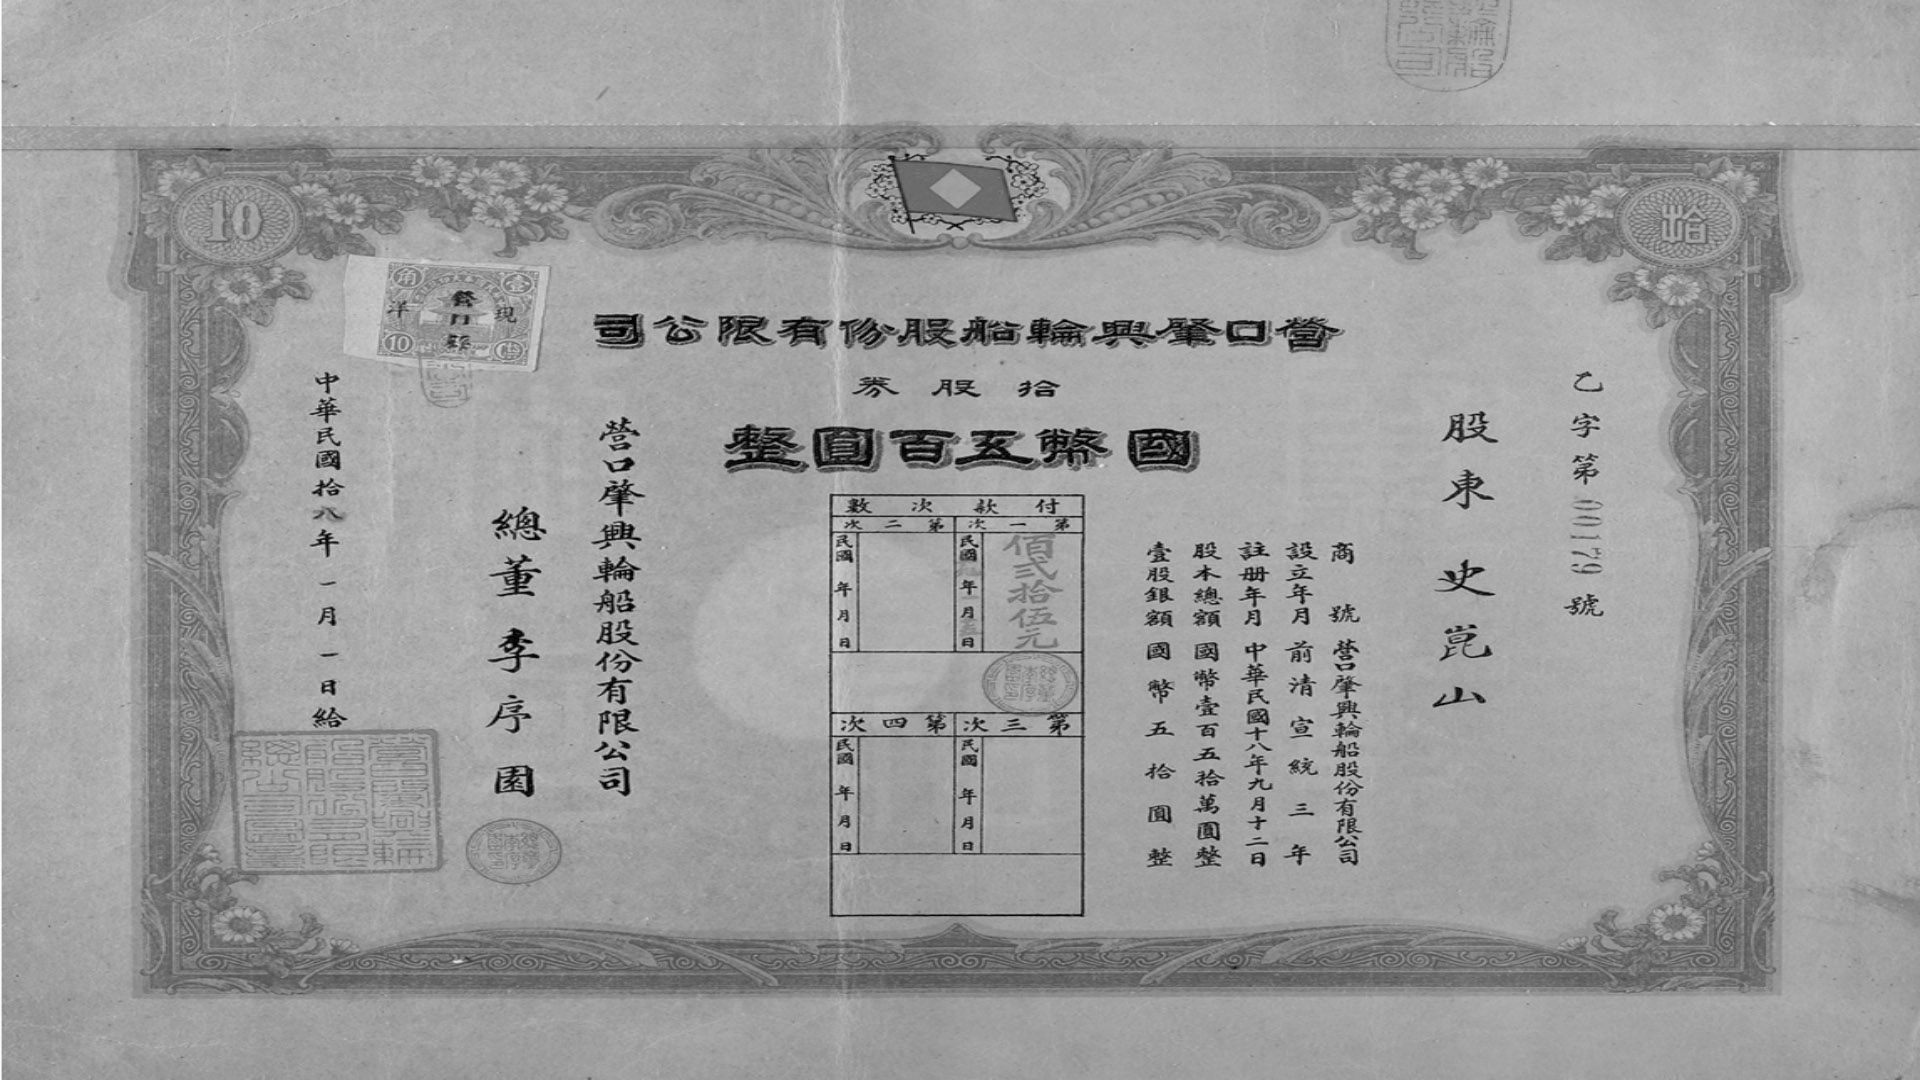 10
拾
營口肇興輪船股份有限公司
拾股券
國幣五百圓整
乙字第00179號
股東 史崑山
商號 營口肇興輪船股份有限公司
設立年月 前清宣統三年
註册年月 中華民國十八年九月十二日
股本總額 國幣壹百五拾萬圓整
壹股銀額 國幣五拾圓整
付款次數
第一次
佰弍拾伍元
民國 年 月 日
第二次
民國年月日
第三次
民國年月日
第四次
民國年月日
營口肇興輪船股份有限公司
總董 李序園
中華民國拾八年一月一日給
壹角
現洋
10